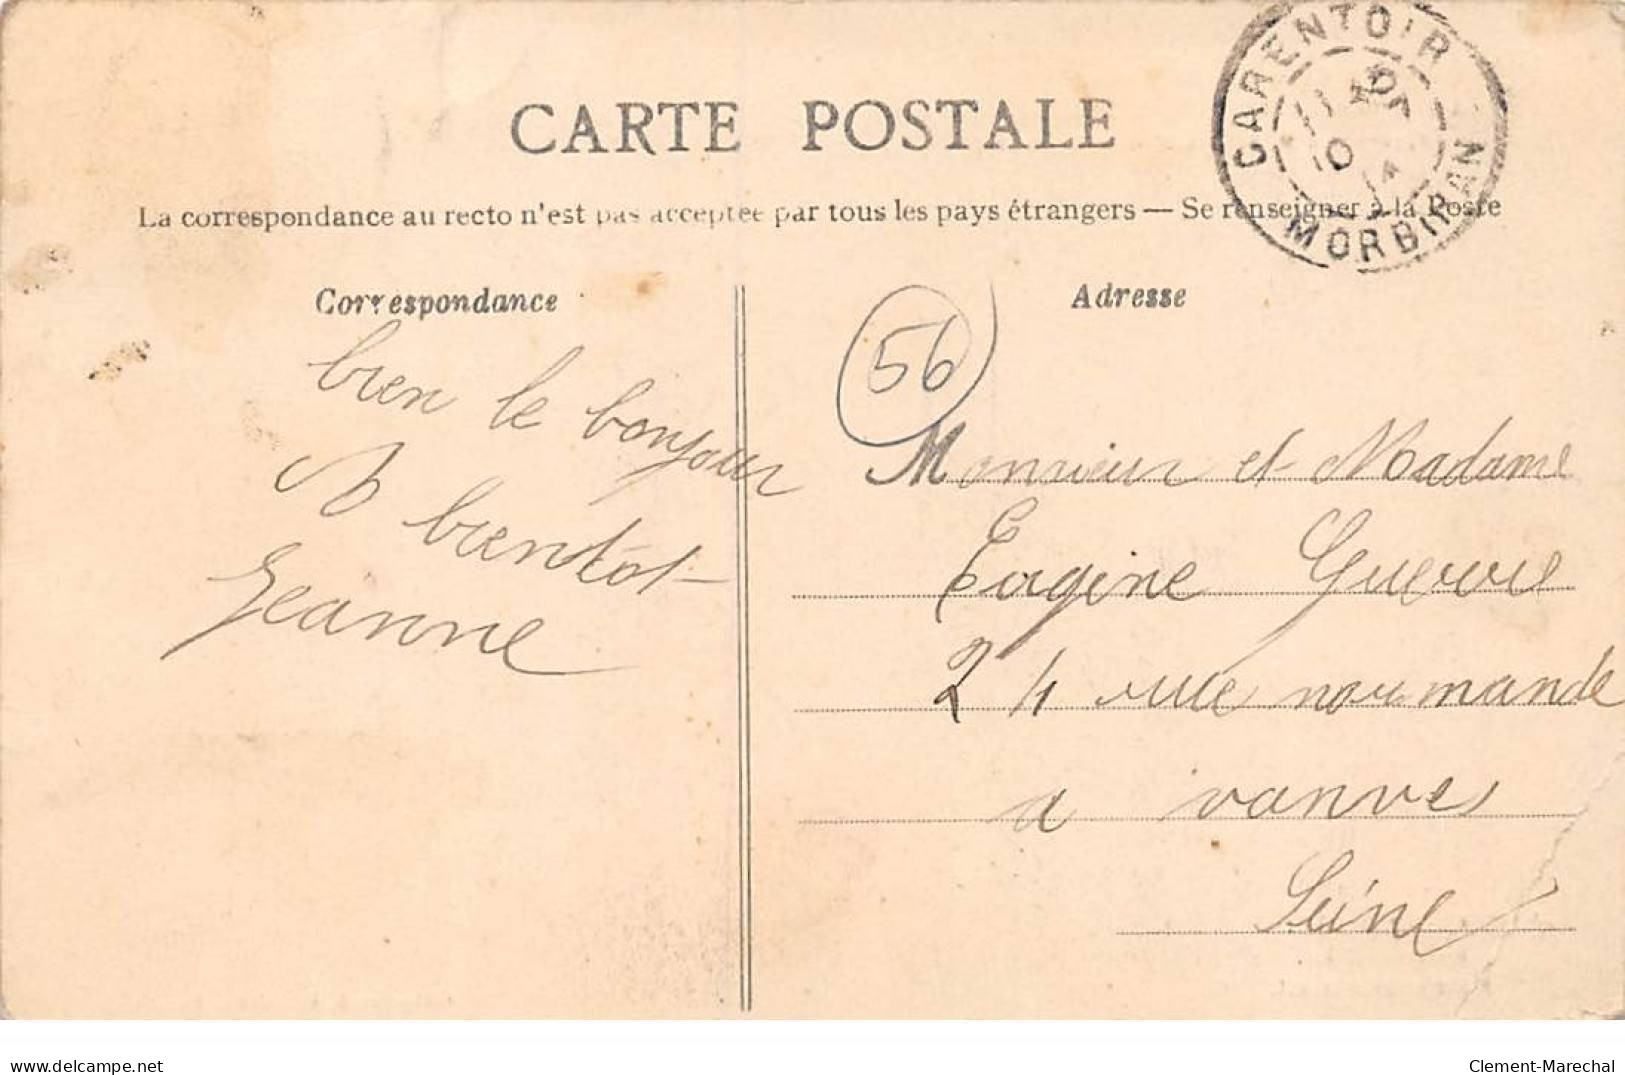 CARENTOIR
MORBIHAN
CARTE POSTALE
La correspondance au recto n'est pas acceptée par tous les pays étrangers — Se renseigner à la Poste
Correspondance
bien le bonjour
A bientôt
Jeanne
Adresse
56
Monsieur et Madame
Eugène
24 rue normande
a vanves
Seine
www.delcampe.net
Clement-Marechal